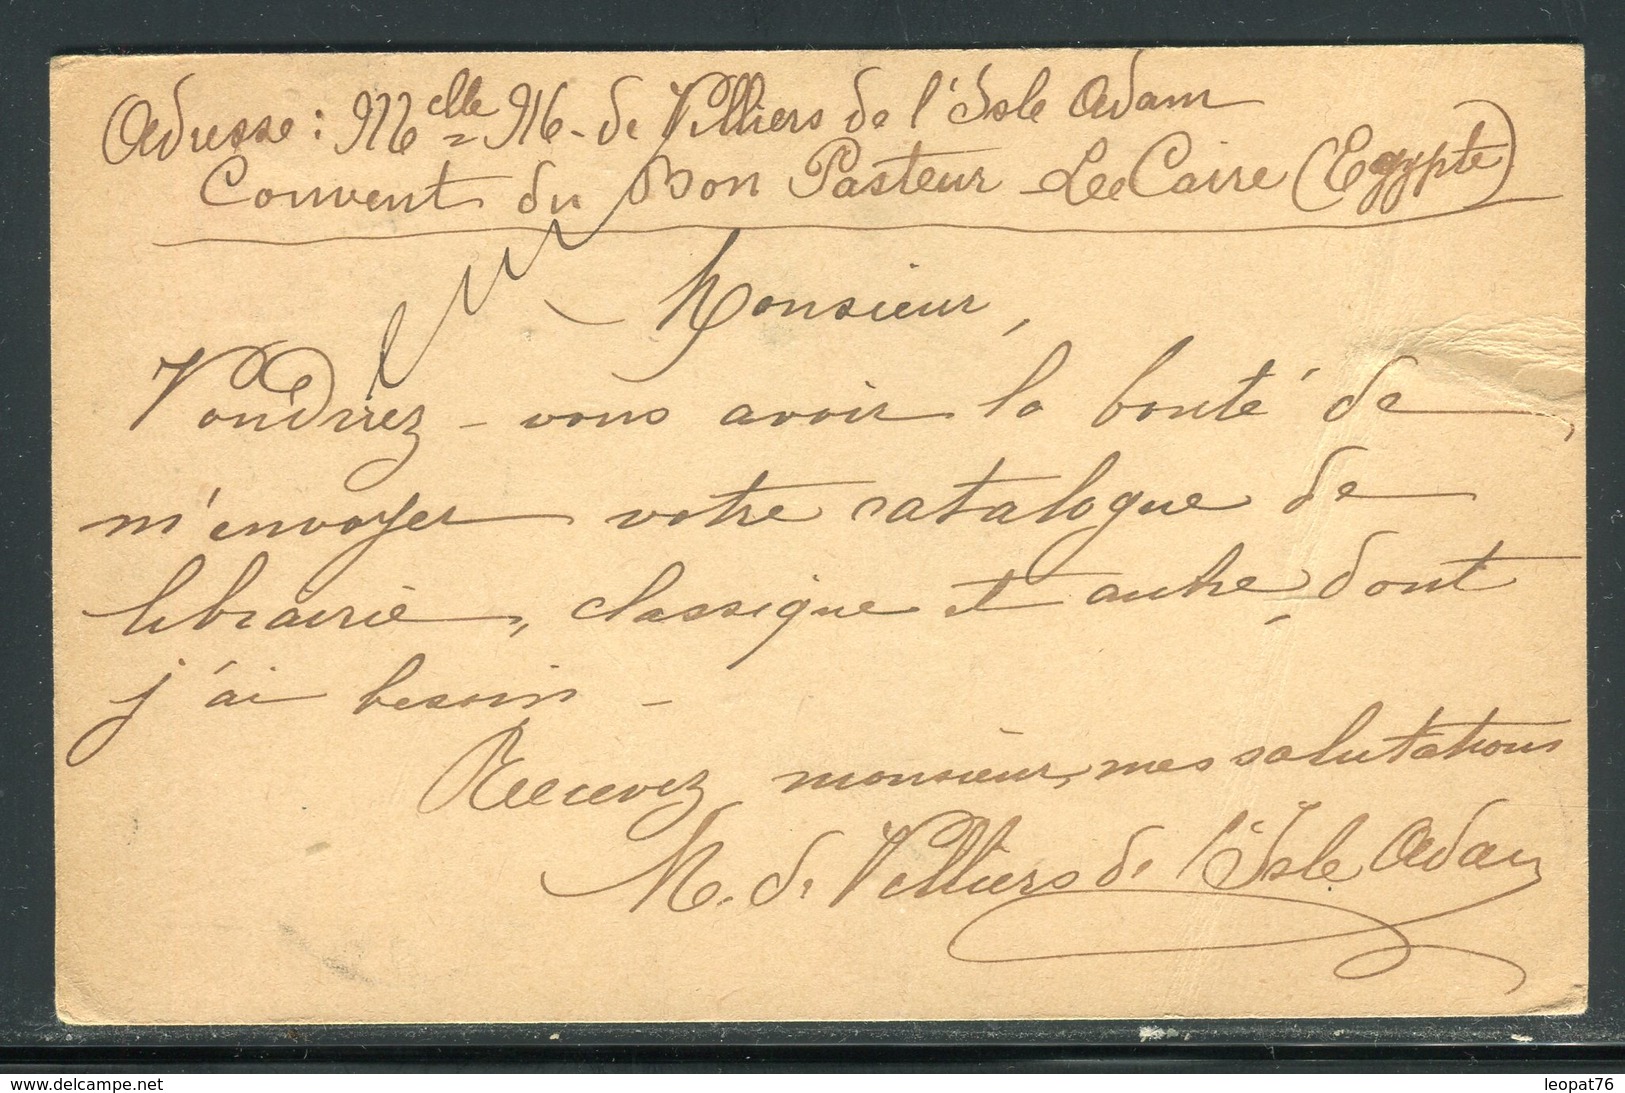 Adresse : Melle M. de Villiers de l'Isle Adam
Convent du Bon Pasteur Le Caire (Egypte)
Monsieur,
Voudriez-vous avoir la bonté de
m'envoyer votre catalogue de
librairie, classique et autre, dont
j'ai besoin -
Recevez monsieur, mes salutations
M. de Villiers de l'Isle Adam
delcampe.net
leopat76